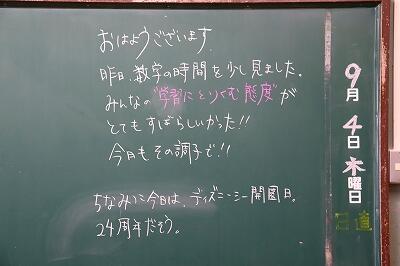 おはようございます.
昨日、数学の時間を少し見ました。
みんなの"学習にとりくむ態度"が
とてもすばらしいかった!!
今日もその調子で!!
ちなみに今日は、ディズニーシー開園日。
24周年だそう。
9月4日木曜日
日直